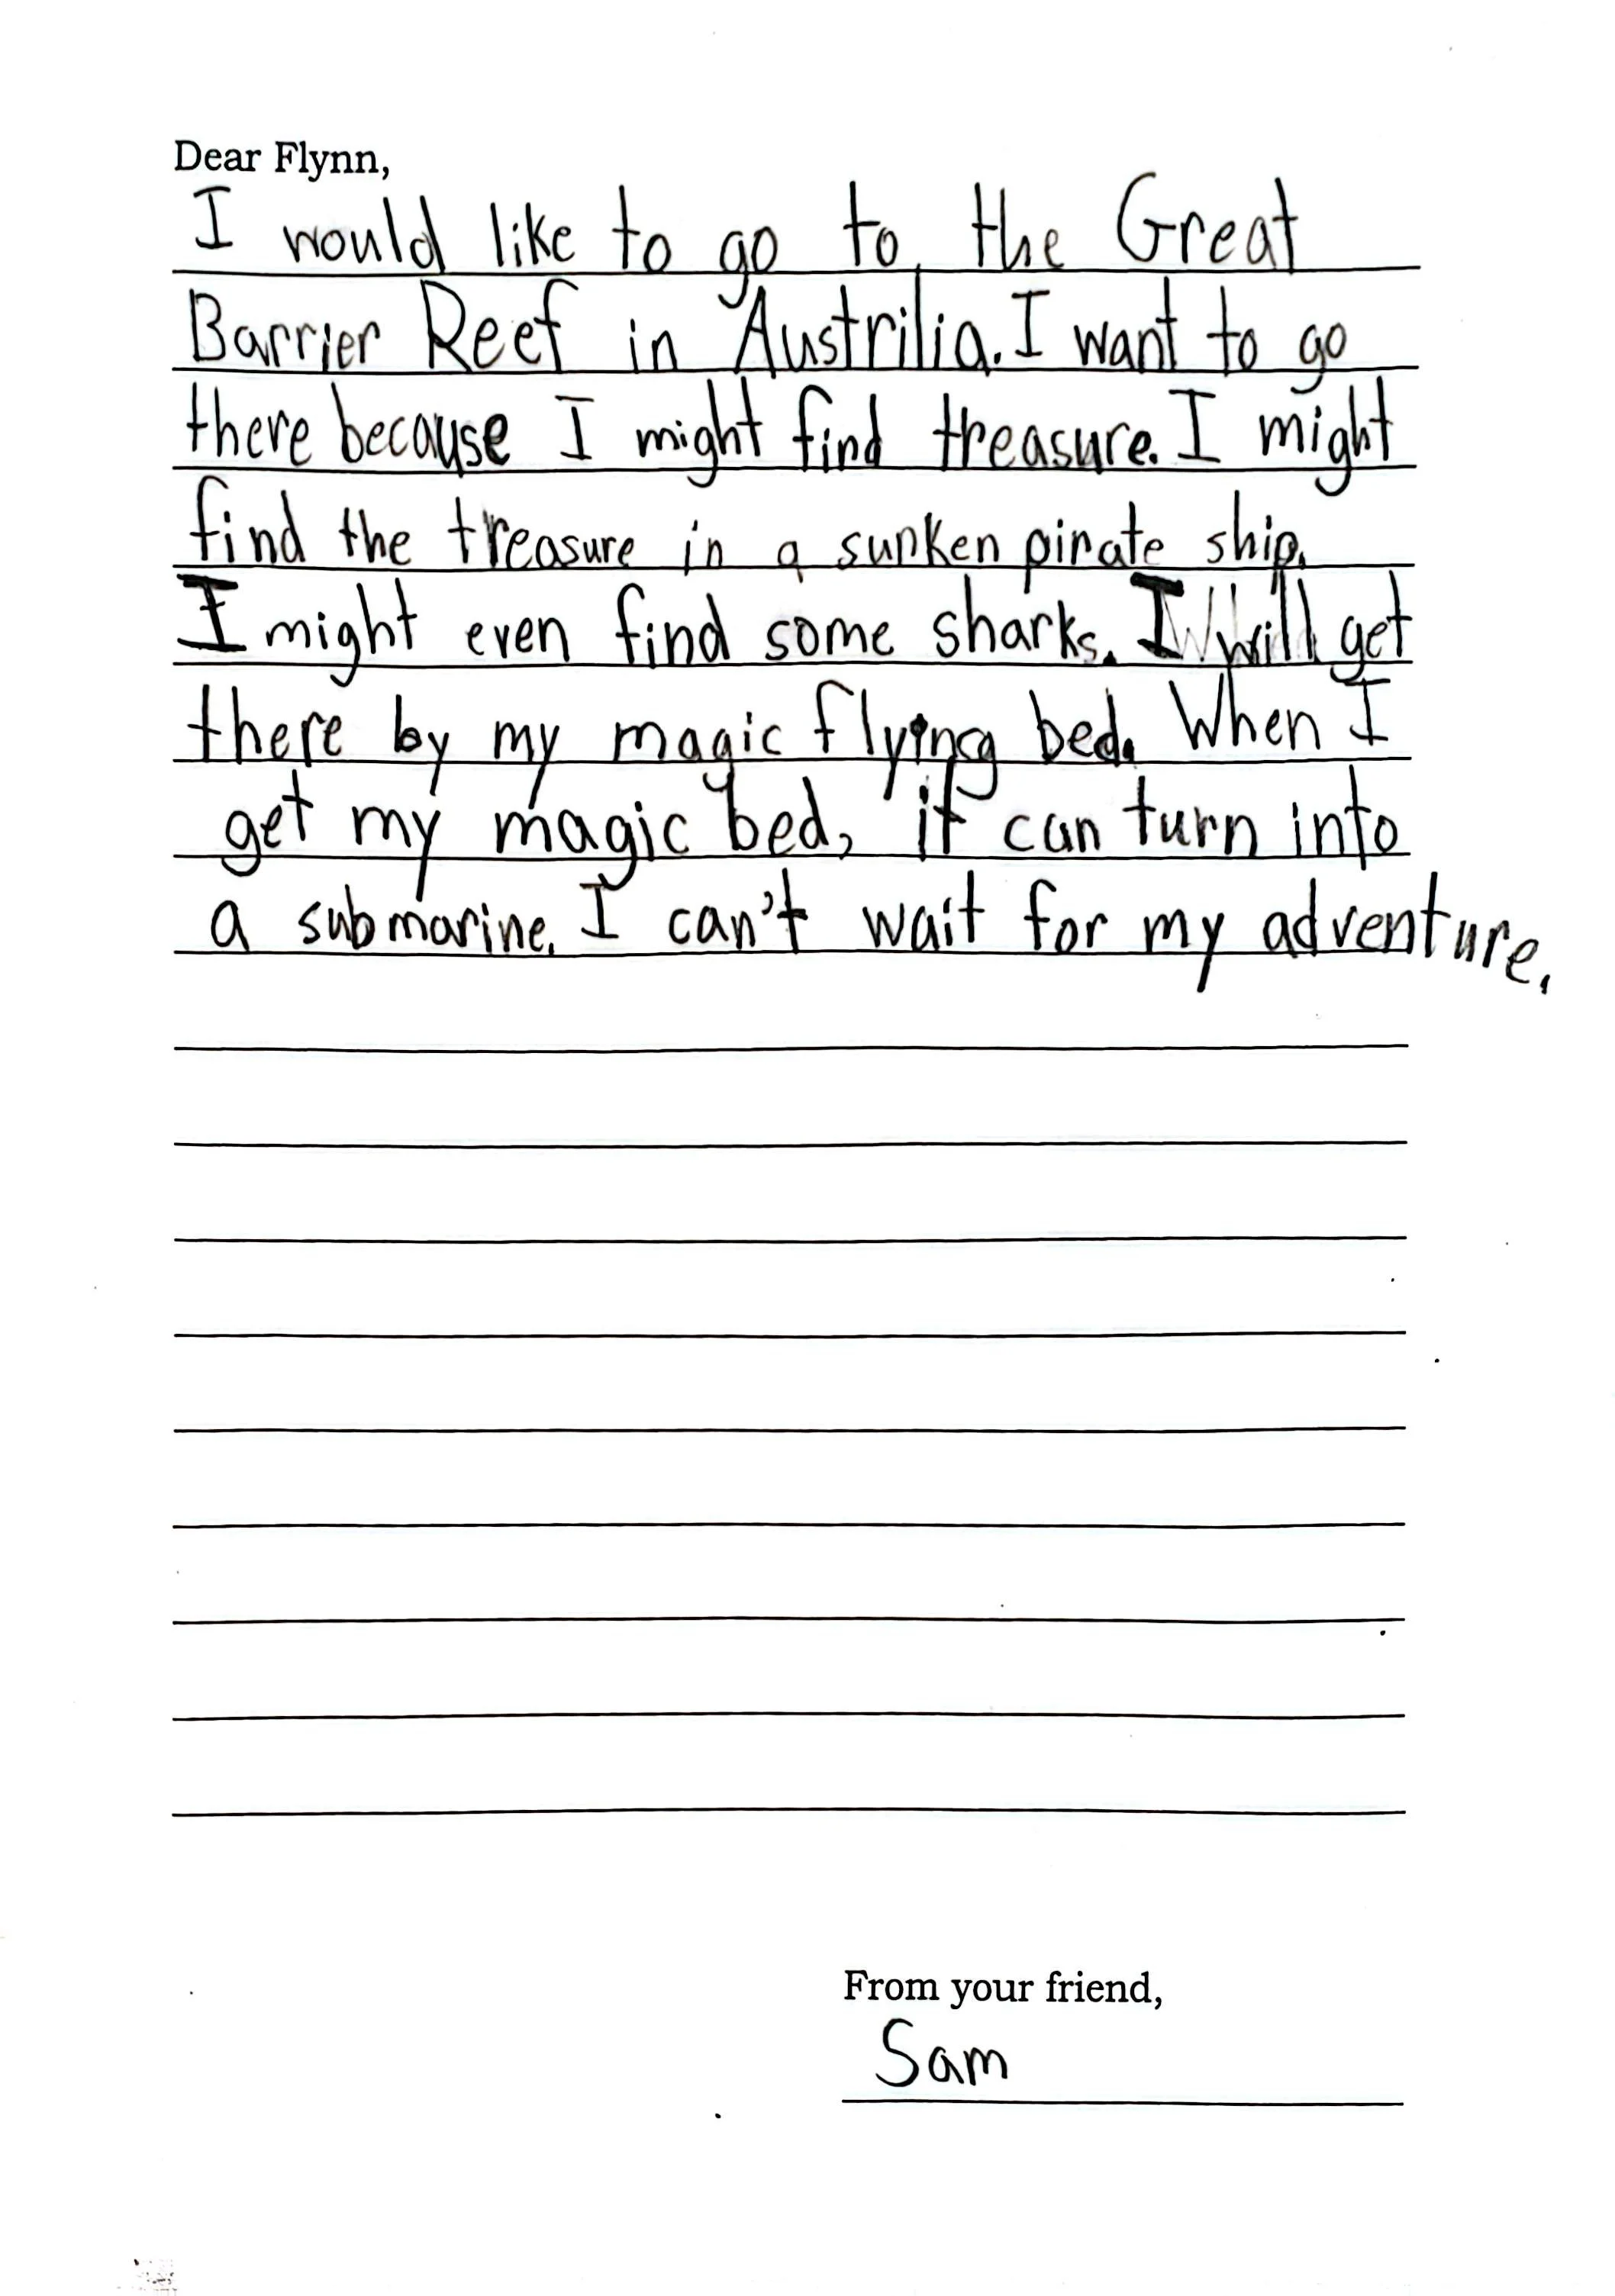 Dear Flynn,
I would like to go to the Great
Barrier Reef in Austrilia. I want to go
there because I might find treasure. I might
find the treasure in a sunken pirate ship.
I might even find some sharks. I will get
there by my magic flying bed. When I
get my magic bed, it can turn into
a submarine. I can't wait for my adventure.
From your friend,
Sam